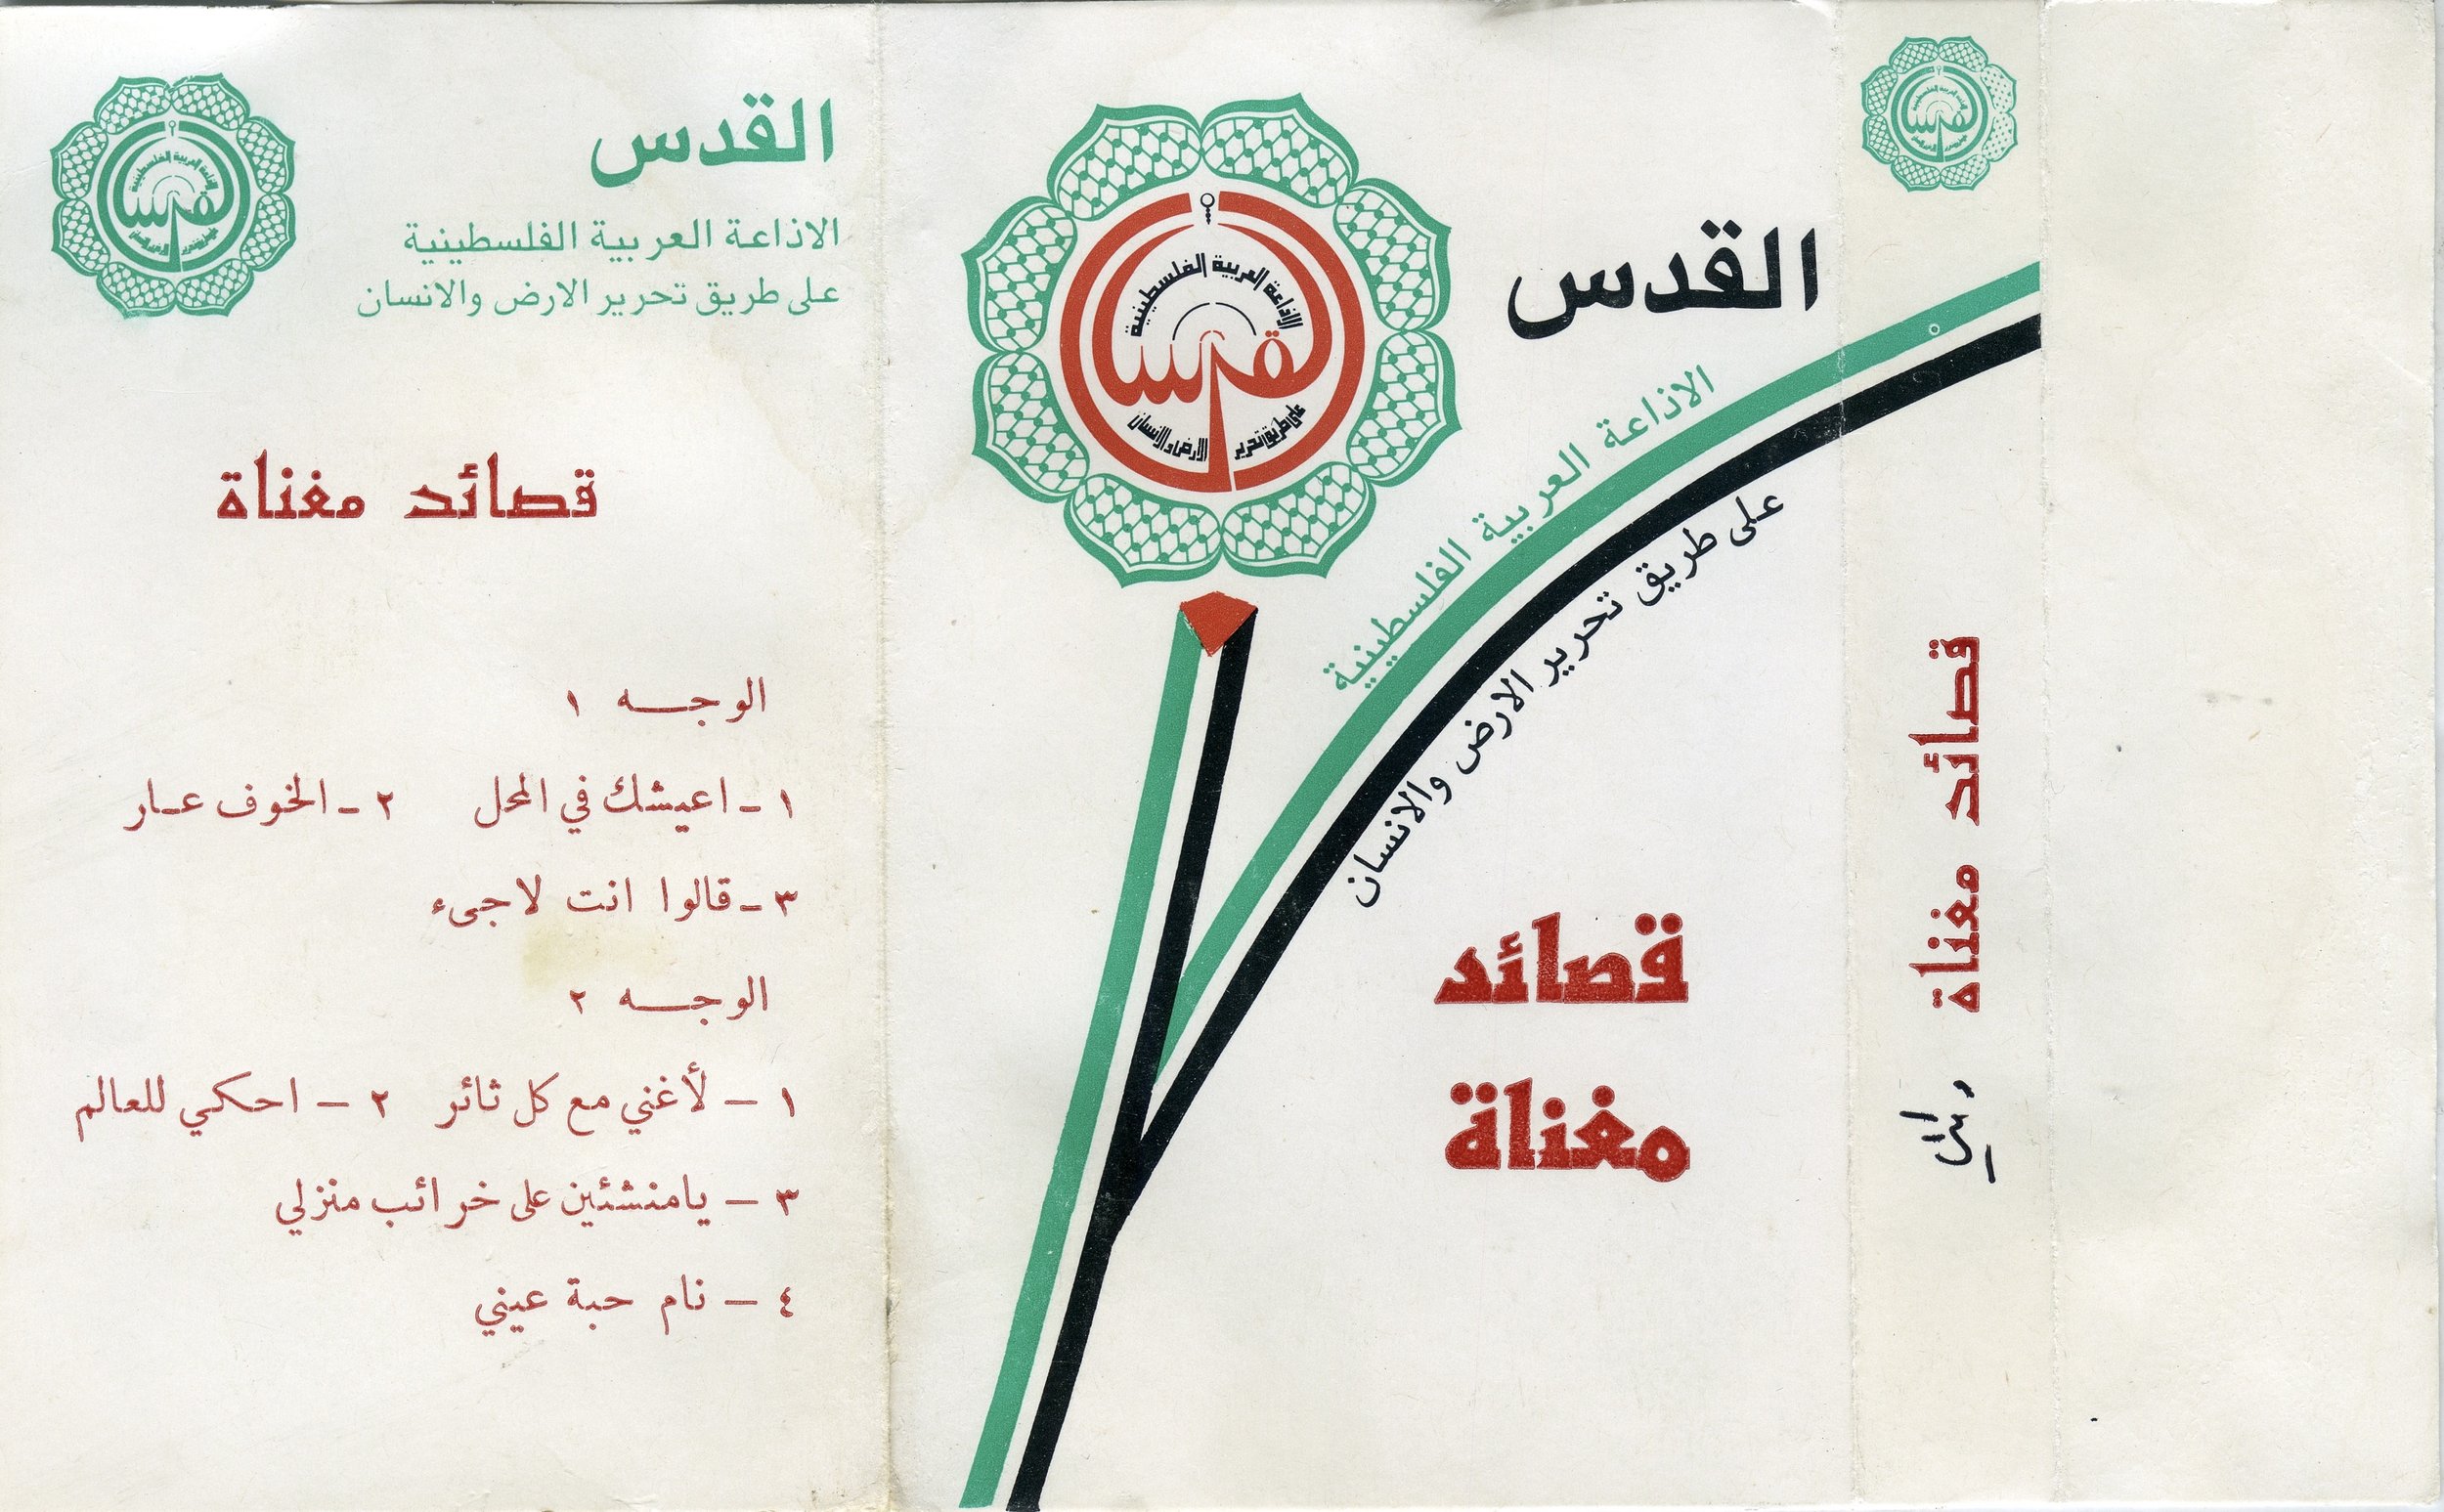 القدس
الاذاعة العربية الفلسطينية
على طريق تحرير الارض والانسان
قصائد مغناة
الوجه ١
١ - اعيشك في المحل ٢ - الخوف عار
٣ - قالوا انت لاجىء
الوجه ٢
١ - لأغني مع كل ثائر ٢ - احكي للعالم
٣ - يامنشئين على خرائب منزلي
٤ - نام حبة عيني
الاذاعة العربية الفلسطينية
القدس
على طريق تحرير الارض والانسان
القدس
الاذاعة العربية الفلسطينية
على طريق تحرير الارض والانسان
قصائد
مغناة
قصائد مغناة